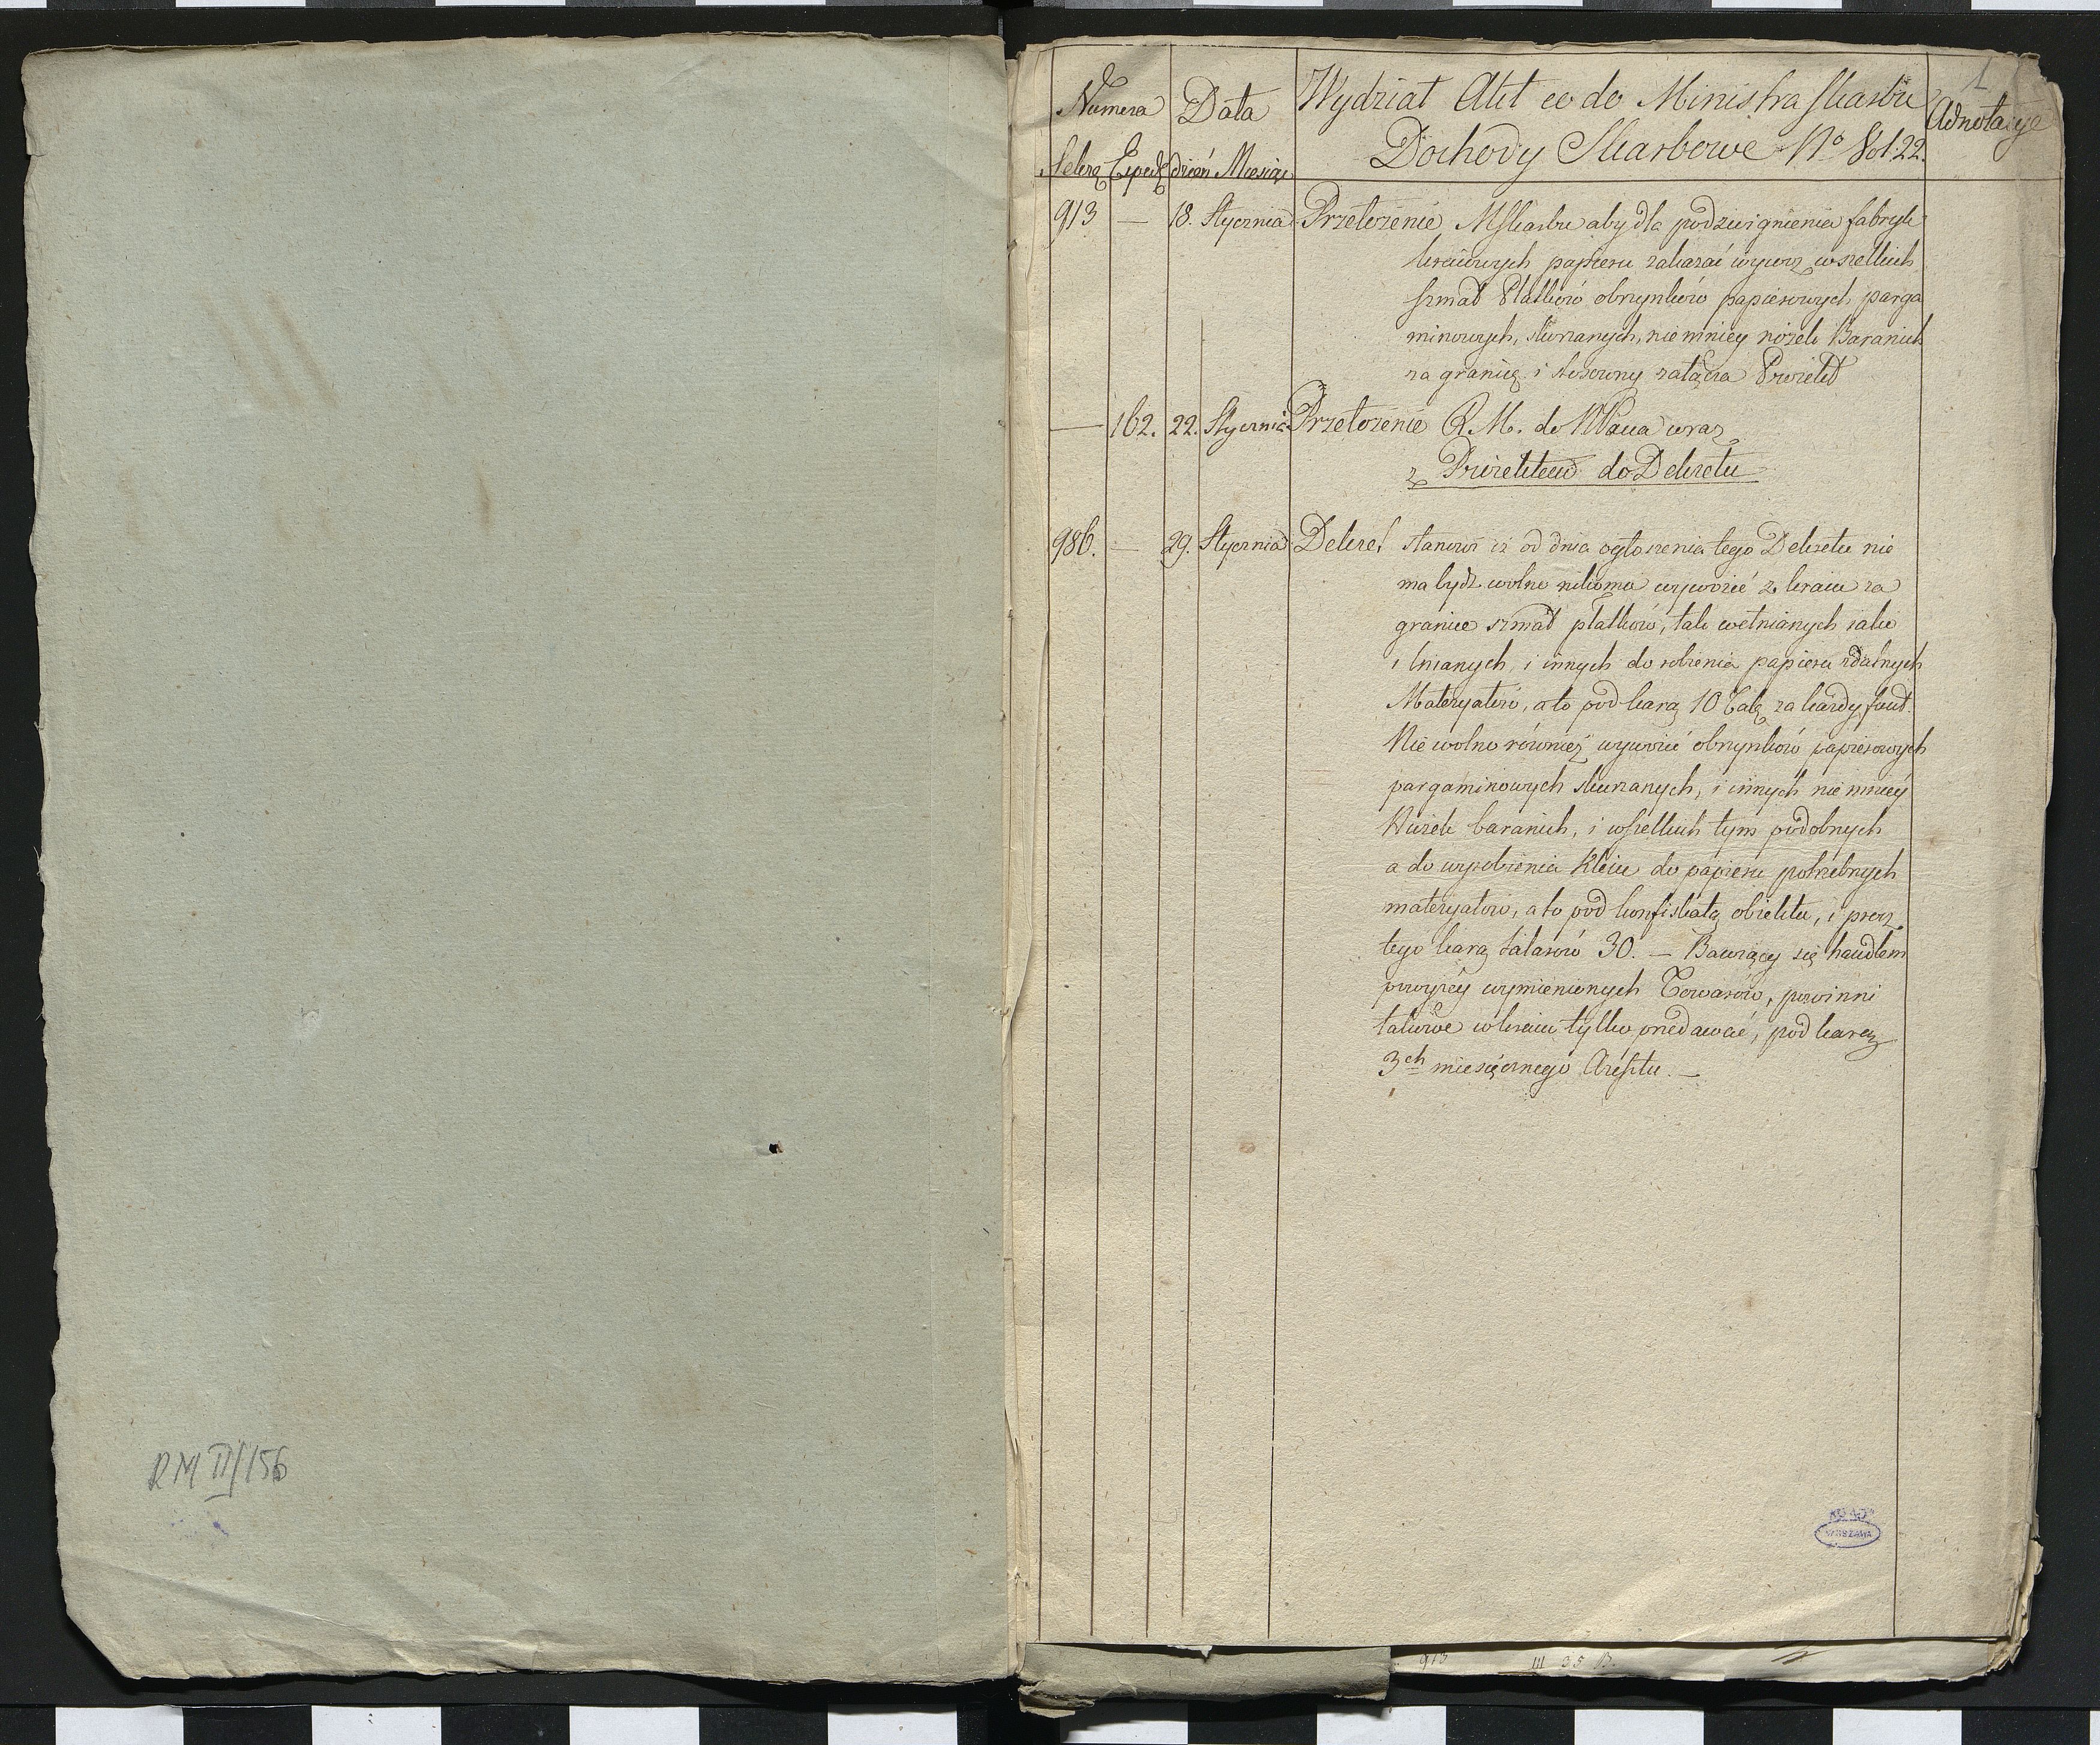 RM II/156
1
Numera Data Wydział Akt co do Ministra Skarbu Adnotacye
Dochody Skarbowe No Vol: 22.
Sekrę Exped dzień Miesiąc
913 — 18. Stycznia Przełożenie MSkarbu aby dla podzwignienia fabryk
kraiowych papieru zakazać wywoz wszelkich
szmat Płatków obrzynków papierowych parga
minowych, skurzanych, nie mniey nożek Baranich
za granicę i stosowny załącza Proiekt
— 162. 22. Stycznia Przełożenie R. M. do NPana wraz
z Proiektem do Dekretu
986. — 29. Stycznia Dekret stanowi iż od dnia ogłoszenia tego Dekretu nie
ma bydź wolno nikomu wywozić z kraiu za
granice szmat płatków, tak wełnianych iako
i lnianych, i innych do robienia papieru zdatnych
Materyałów, a to pod karą 10 Talę za każdy funt.
Nie wolno również wywozić obrzynków papierowych
pargaminowych skurzanych, i innych nie mniey
Nużek baranich, i wszelkich tym podobnych
a do wyrobienia Kleiu do papieru potrzebnych
materyałów, a to pod konfiskatą obiektu, i procz
tego karą talarów 30. — Bawiący się handlem
powyżey wymienionych Towarów, powinni
takowe w kraiu tylko przedawać, pod karą
3ch miesięcznego Aresztu. —
AGAD
WARSZAWA
913 III 35 B.